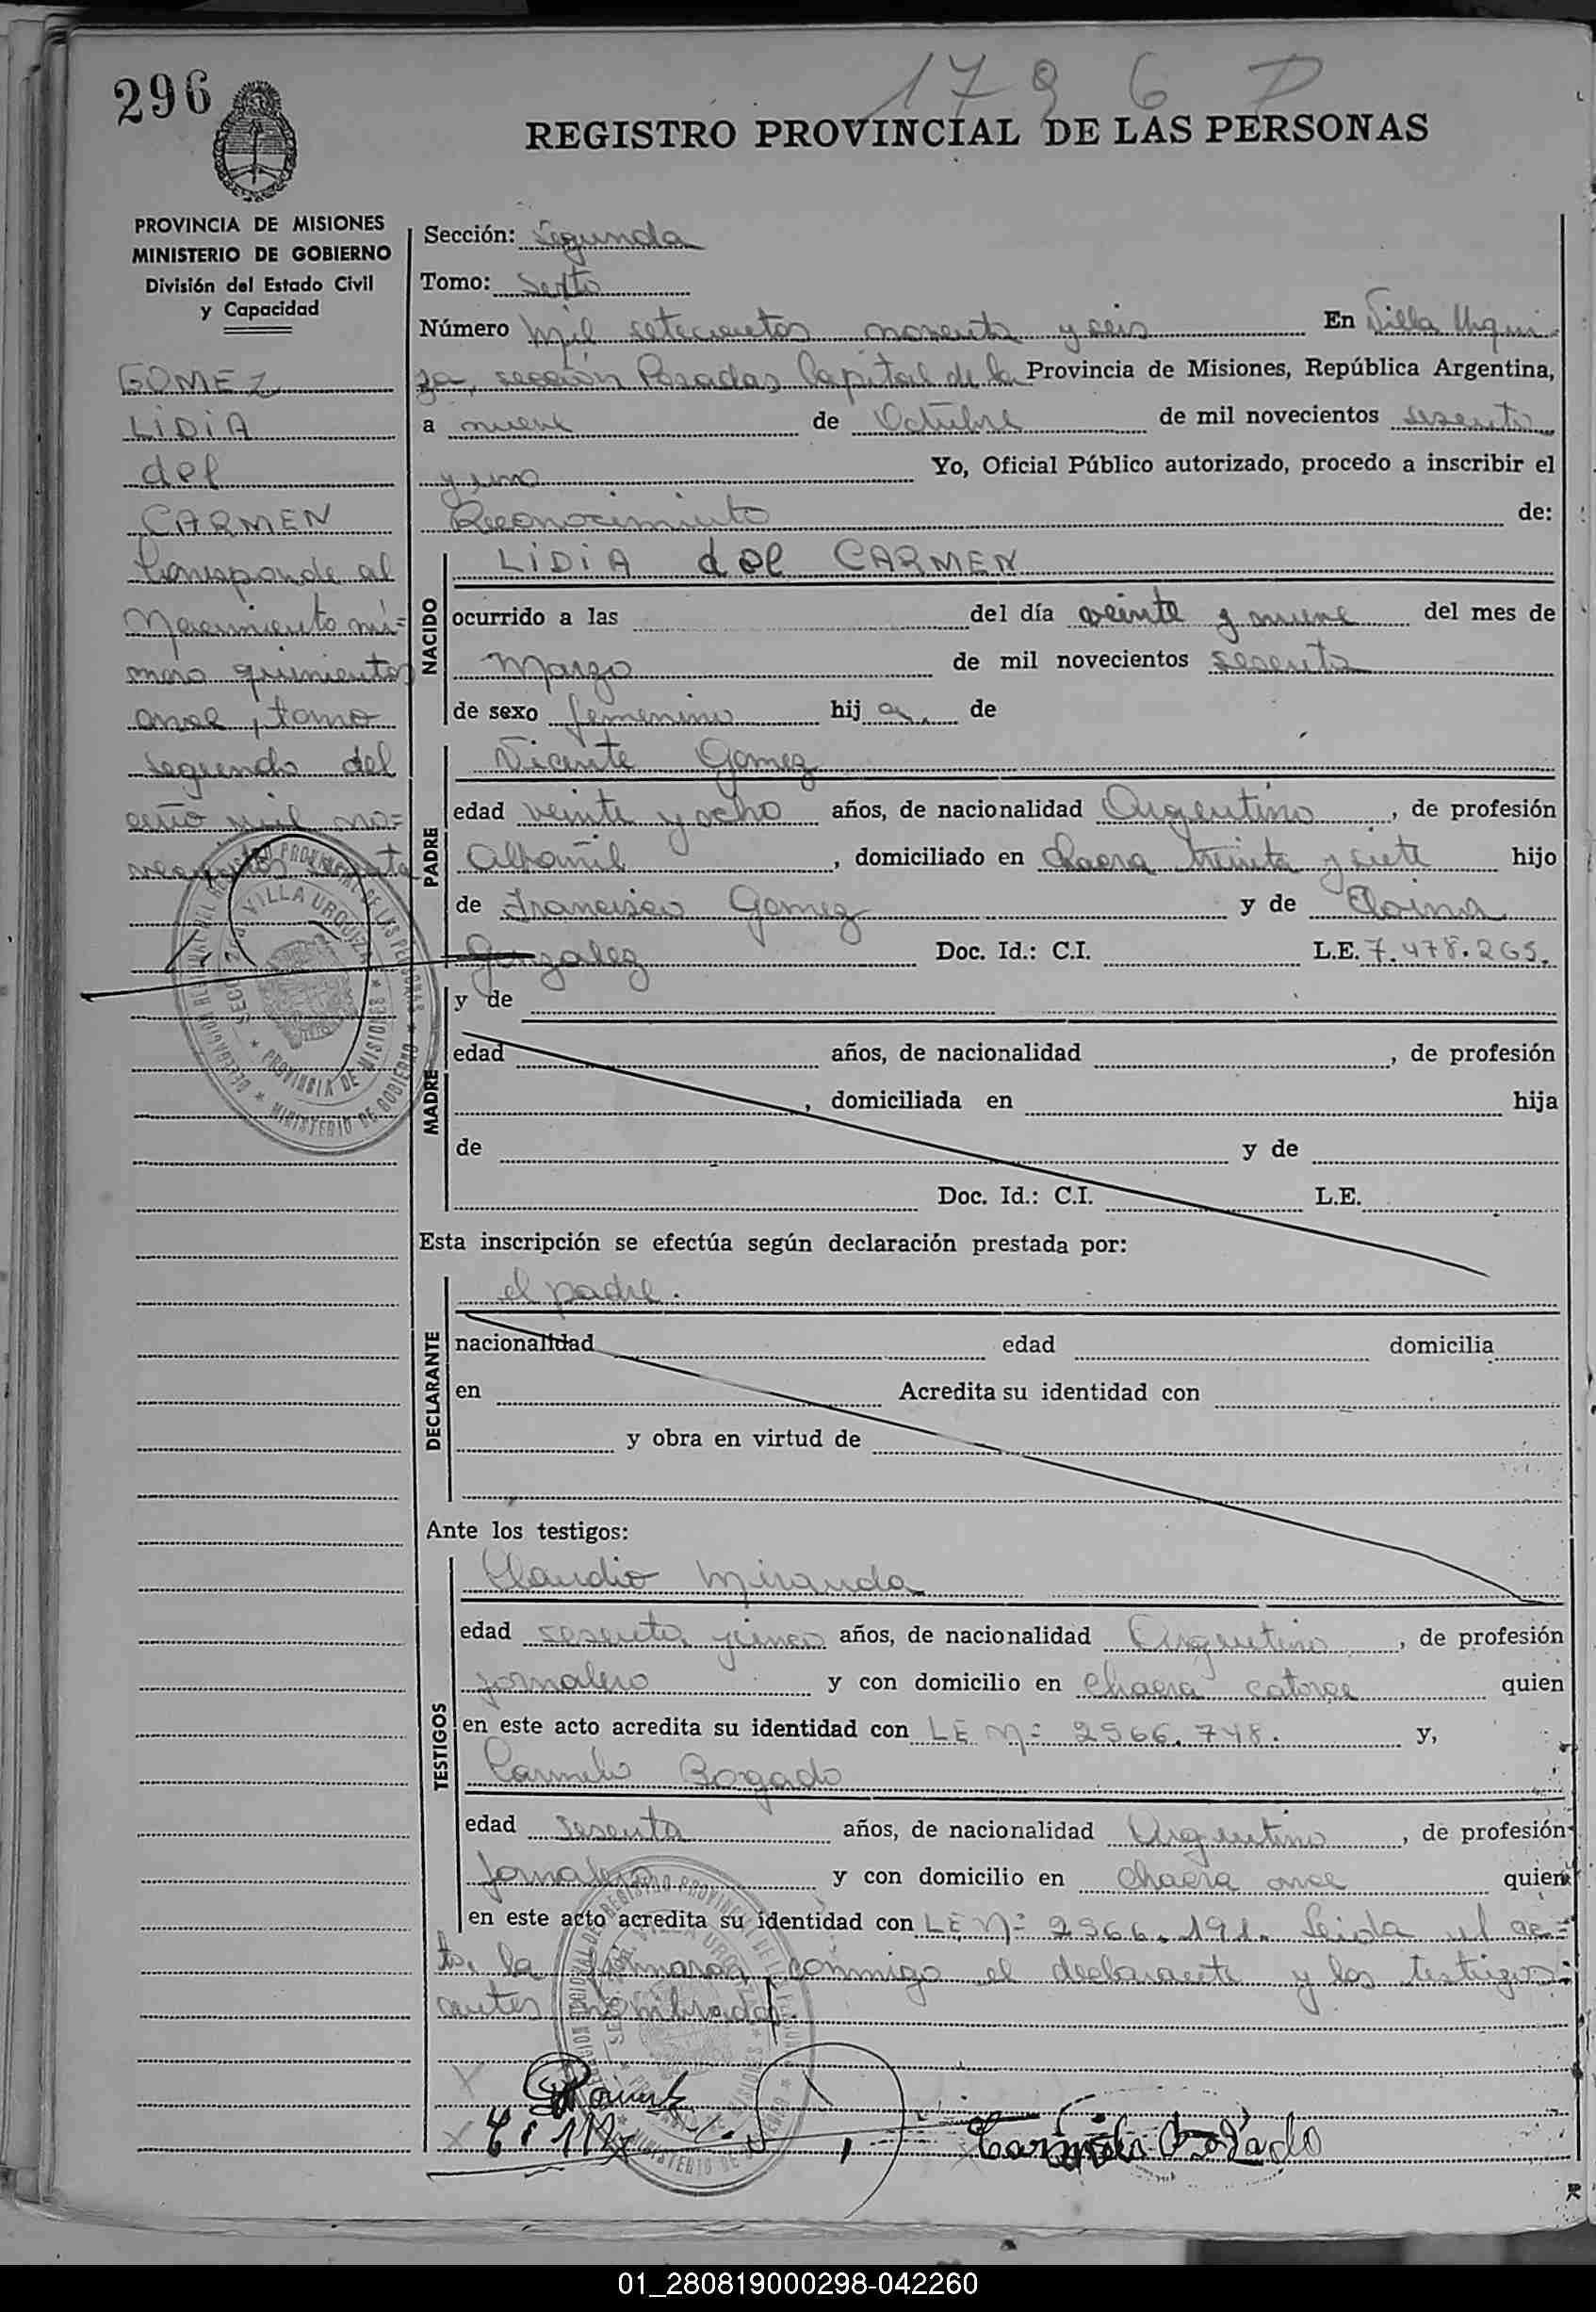 296
1796 D
REGISTRO PROVINCIAL DE LAS PERSONAS
PROVINCIA DE MISIONES
MINISTERIO DE GOBIERNO
División del Estado Civil
y Capacidad
GOMEZ
LIDIA
del
CARMEN
Corresponde al
Nacimiento nú=
mero quinientos
once, tomo
segundo del
año mil no=
vecientos sesenta
Sección: Segunda
Tomo: Sexto
Número Mil setecientos noventa y seis En Villa Urqui
za, sección Posadas Capital de la Provincia de Misiones, República Argentina,
a nueve de Octubre de mil novecientos sesenta
y uno Yo, Oficial Público autorizado, procedo a inscribir el
Reconocimiento de:
NACIDO
LIDIA del CARMEN
ocurrido a las del día veinte y nueve del mes de
Marzo de mil novecientos sesenta
de sexo femenino hij a. de
PADRE
Vicente Gomez
edad veinte y ocho años, de nacionalidad Argentino, de profesión
Albañil, domiciliado en chacra treinta y siete hijo
de Francisco Gomez y de
Gonzalez Doc. Id.: C.I. L.E. 7.478.265.
MADRE
y de
edad años, de nacionalidad , de profesión
, domiciliada en hija
de y de
Doc. Id.: C.I. L.E.
Esta inscripción se efectúa según declaración prestada por:
DECLARANTE
el padre.
nacionalidad edad domicilia
en Acredita su identidad con
y obra en virtud de
Ante los testigos:
TESTIGOS
Claudio Miranda
edad sesenta y cinco años, de nacionalidad Argentino, de profesión
jornalero y con domicilio en chacra catorce quien
en este acto acredita su identidad con LE Nº 2566.748. y,
Carmelo Bogado
edad sesenta años, de nacionalidad Argentino, de profesión
Jornalero y con domicilio en chacra once quien
en este acto acredita su identidad con LE Nº 2566.191. Leida el ac=
ta, la firmaron conmigo el declarante y los testigos
antes nombrados.
Carmelo Bogado
01_280819000298-042260